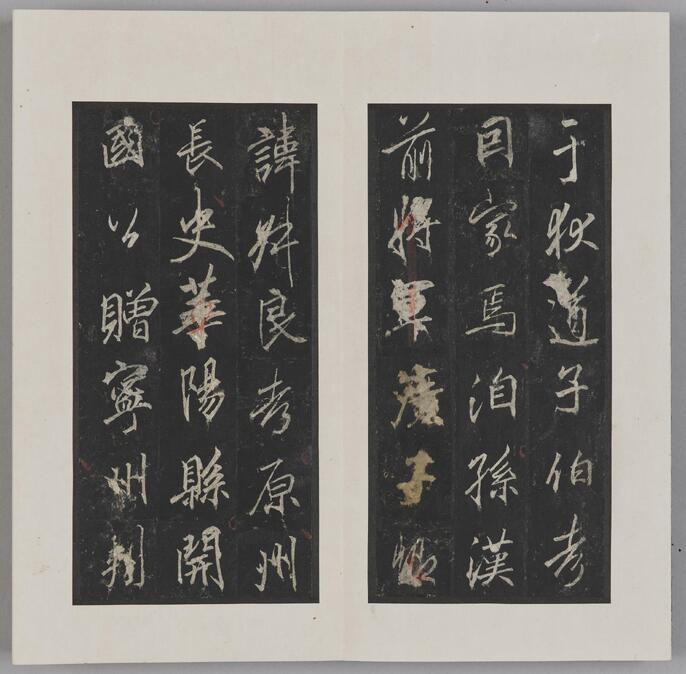 于狄道子伯考
因家焉洎孫漢
前將軍廣子
諱叔良考原州
長史華陽縣開
國公贈寧州刺